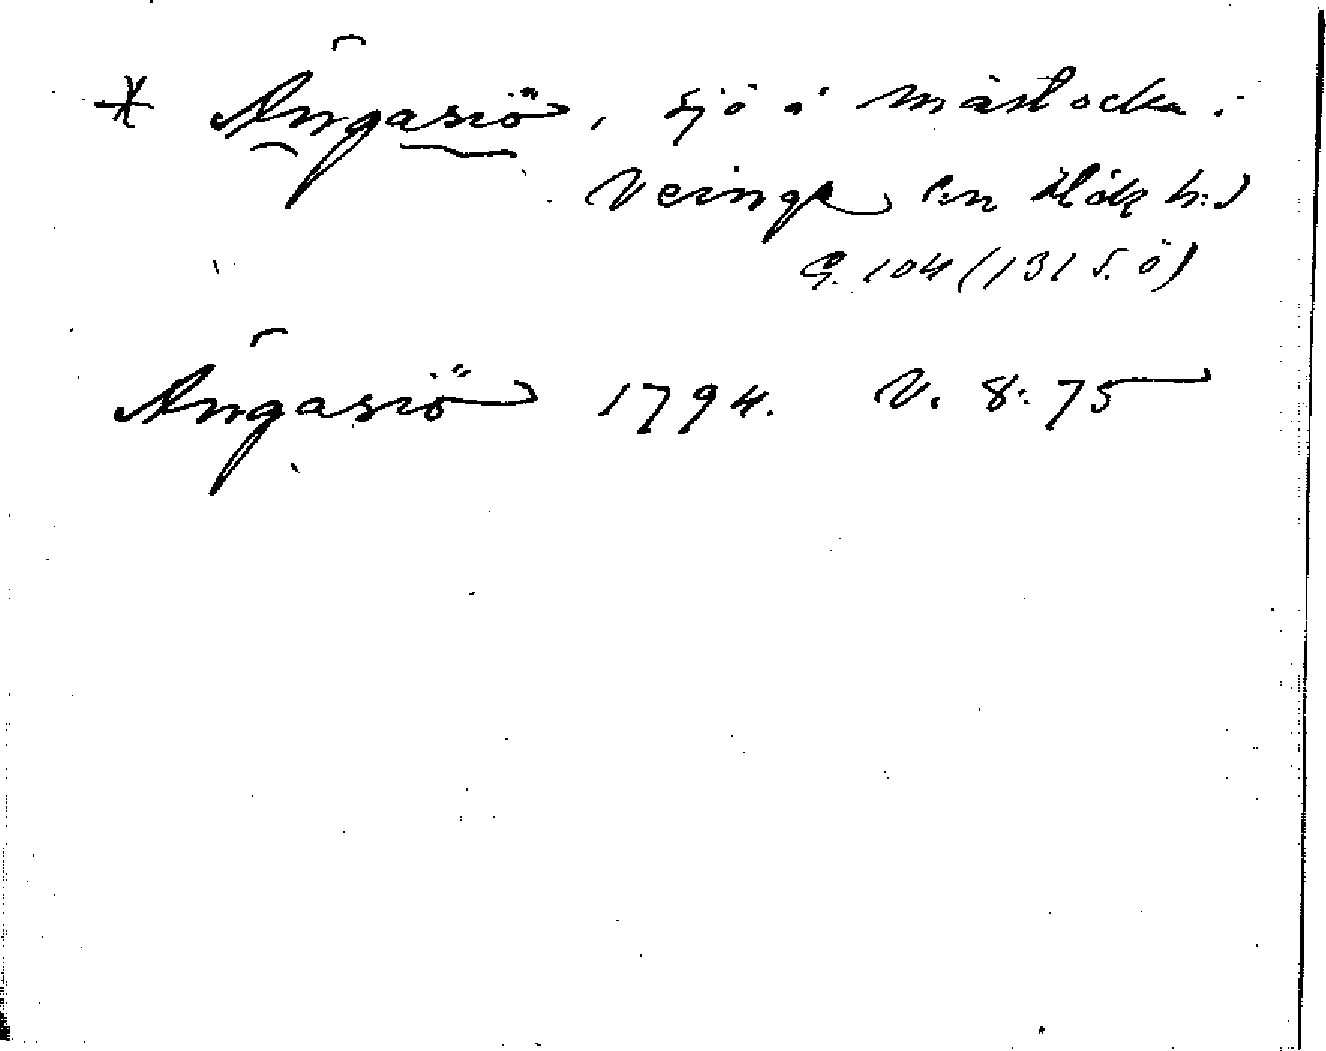 * Ängasiö, sjö i Mästocka i
Veinge sn Hök hd
G. 104 (131 S. ö)
Ängasiö 1794. V. 8: 75